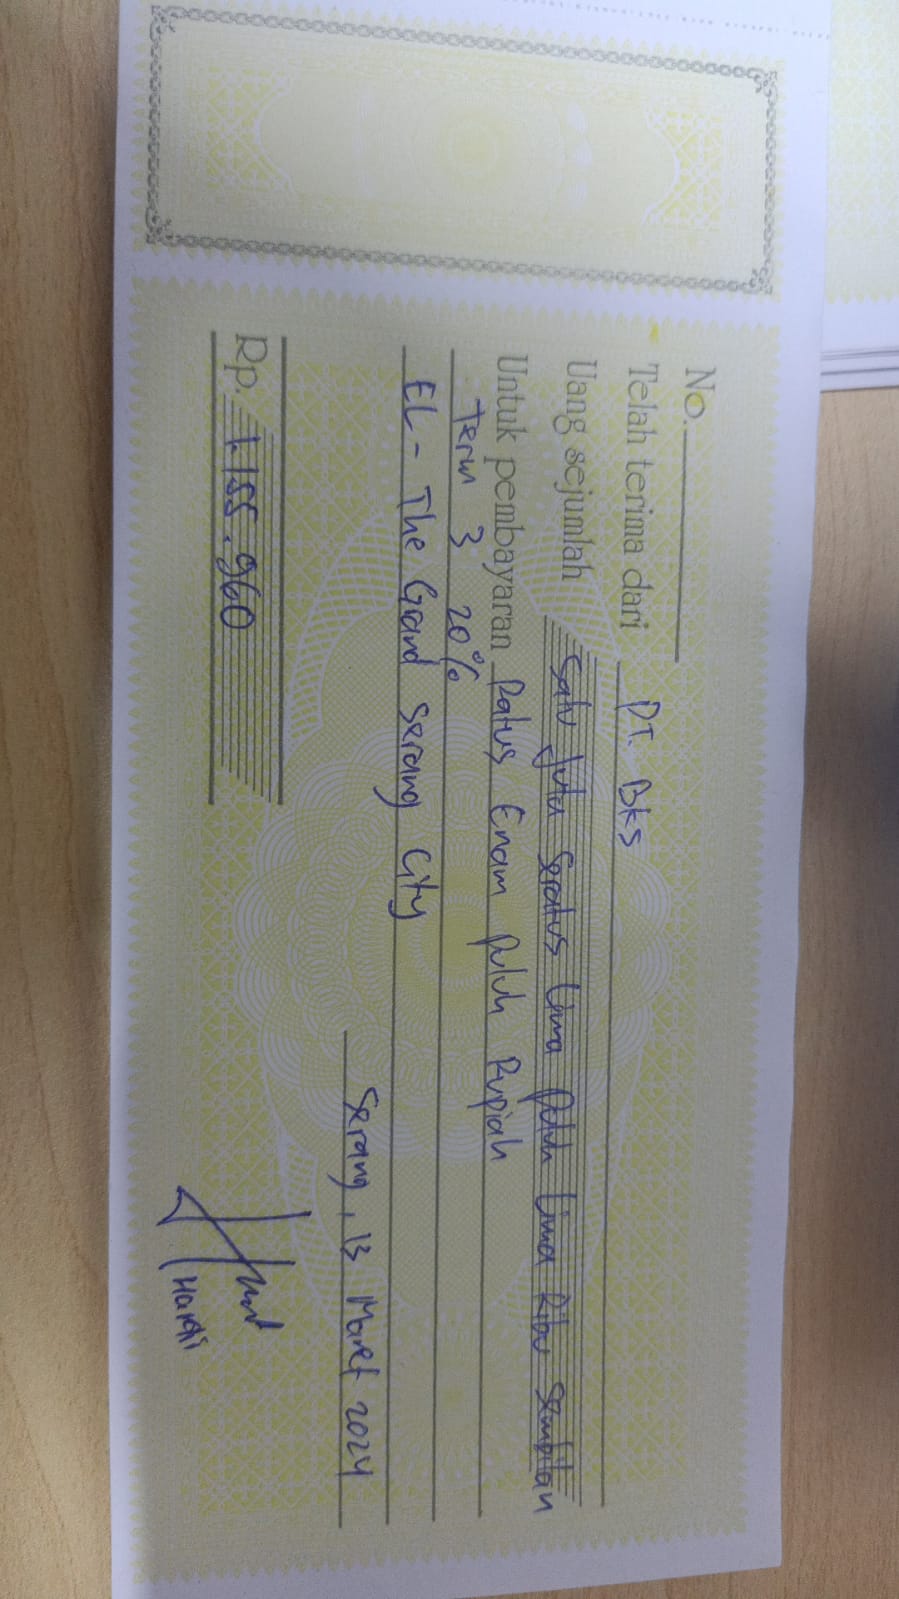 No.
Telah terima dari PT. BKS
Uang sejumlah Satu Juta Seratus Lima Puluh Lima Ribu Sembilan
Untuk pembayaran Ratus Enam puluh Rupiah
Term 3 20%
EL - The Grand Serang City
Serang, 13 Maret 2024
Rp. 1.155.960
Hardi